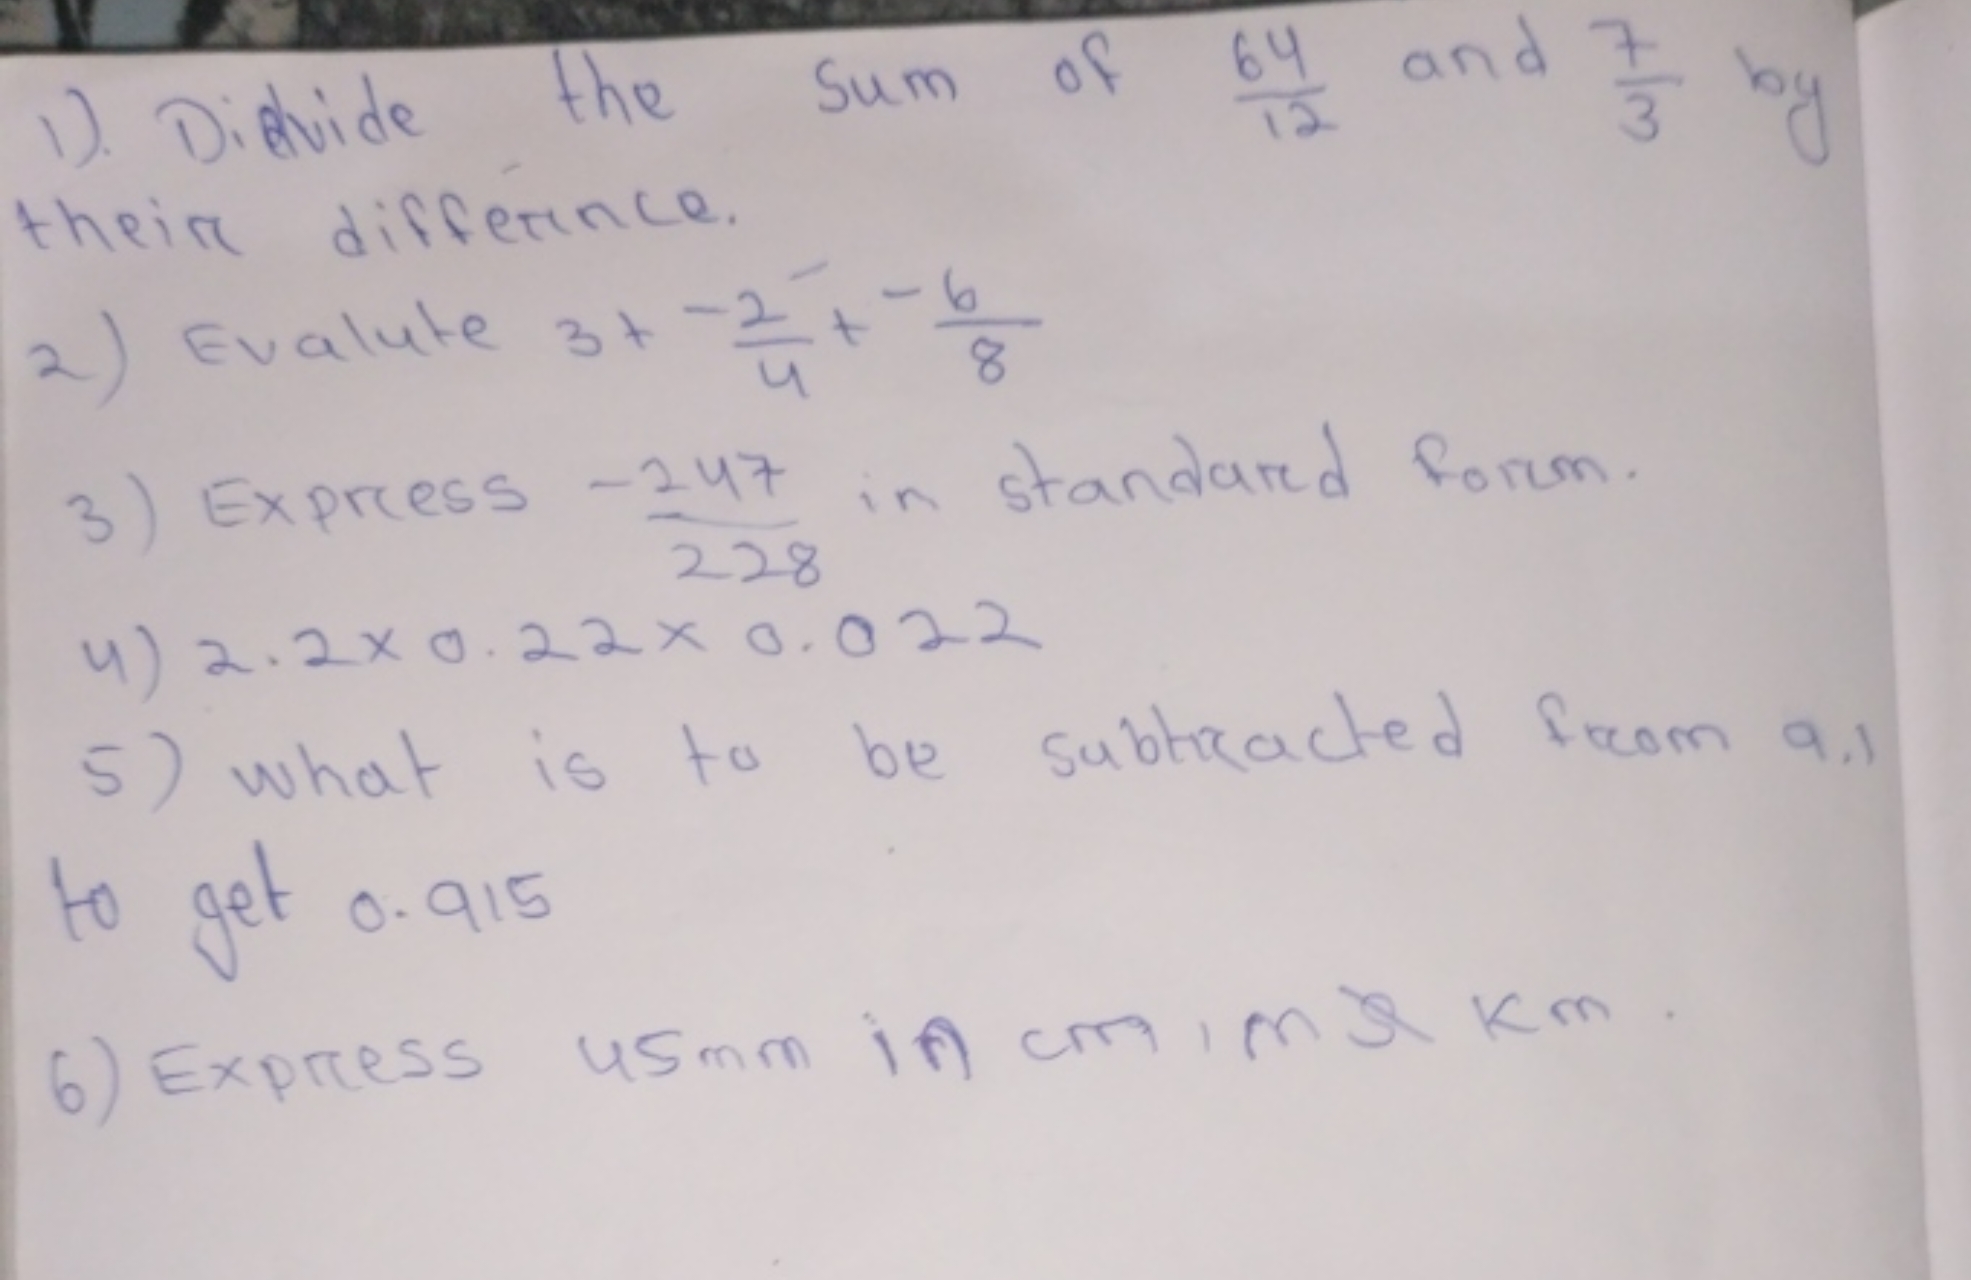 1). Didvide the Sum of 64/12 and 7/3 by
their differince.
2) Evalute 3 + -2/4 + -6/8
3) Express -247/228 in standard form.
4) 2.2 x 0.22 x 0.022
5) what is to be subtracted from 9.1
to get 0.915
6) Express 45mm in cm, m & Km.